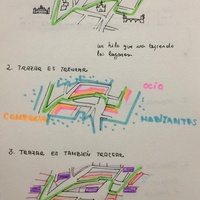 un hilo que va tejiendo
los lugares
2. TRAZAR ES TRENZAR
OCIO
COMERCIO
HABITANTES
3. TRAZAR ES TAMBIÉN TRAZAR